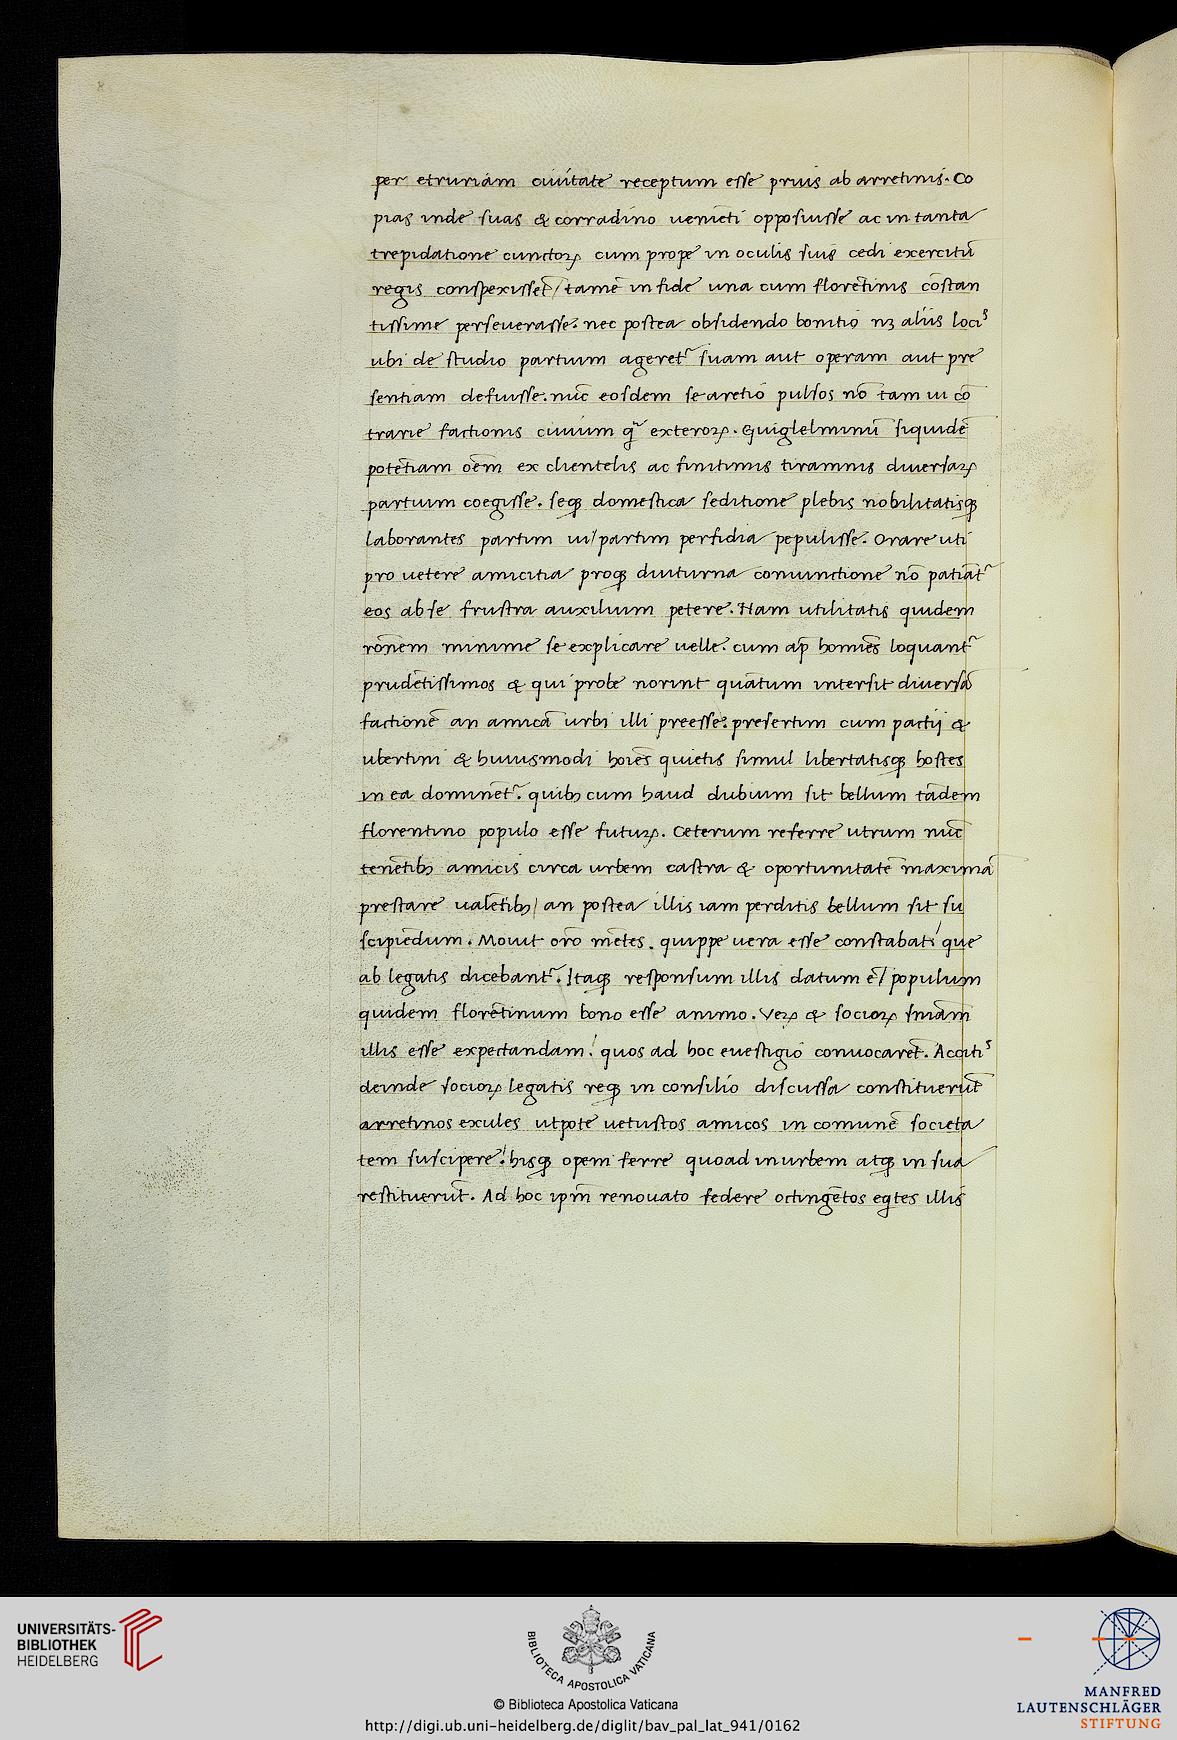 per etruriam ciuitate receptum esse prius ab arretinis. Co
pias inde suas & corradino uenieti opposuisse ac in tanta
trepidatione cunctoꝝ cum prope in oculis suis cedi exercitū
regis conspexisset̄/ tamē in fide una cum florētinis cōstan
tissime perseuerasse. nec postea obsidendo bonitio nꝫ aliis locis
ubi de studio partium ageret᷑ suam aut operam aut pre
sentiam defuisse. nūc eosdem se aretio pulsos nō tam ui cō
trarie factionis ciuium q̄ exteroꝝ. Guiglelminū siquidē
potētiam oēm ex clientelis ac finitimis tirannis diuersaꝝ
partium coegisse. seqꝫ domestica seditione plebis nobilitatisqꝫ
laborantes partim ui/ partim perfidia pepulisse. Orare uti
pro uetere amicitia proqꝫ diuturna coniunctione nō patiāt᷑
eos ab se frustra auxilium petere. Nam utilitatis quidem
rōnem minime se explicare uelle. cum ap̄ homiēs loquant᷑
prudētissimos & qui probe norint quātum intersit diuersā
factionē an amicā urbi illi preesse. presertim cum pactij &
ubertini & huiusmodi hoiēs quietis simul libertatisqꝫ hostes
in ea dominēt᷑. quibꝫ cum haud dubium sit bellum tādem
florentino populo esse futuꝝ. Ceterum referre utrum nūc
tenētibꝫ amicis circa urbem castra & oportunitatē maximā
prestare ualētibꝫ/ an postea illis iam perditis bellum sit su
scipiēdum. Mouit orō mētes. quippe uera esse constabat/ que
ab legatis dicebant᷑. Itaqꝫ responsum illis datum ē/ populum
quidem florētinum bono esse animo. Veꝝ & socioꝝ sn̄iam
illis esse expectandam/ quos ad hoc euestigio conuocaret. Accitis
deinde socioꝝ legatis reqꝫ in consilio discussa constituerūt
arretinos exules utpote uetustos amicos in comunē societa
tem suscipere/ hisqꝫ opem ferre quoad in urbem atqꝫ in sua
restituerūt. Ad hoc ip̄m renouato federe octingētos eqtes illis
UNIVERSITÄTS-
BIBLIOTHEK
HEIDELBERG
BIBLIOTECA APOSTOLICA VATICANA
© Biblioteca Apostolica Vaticana
http://digi.ub.uni-heidelberg.de/diglit/bav_pal_lat_941/0162
MANFRED
LAUTENSCHLÄGER
STIFTUNG